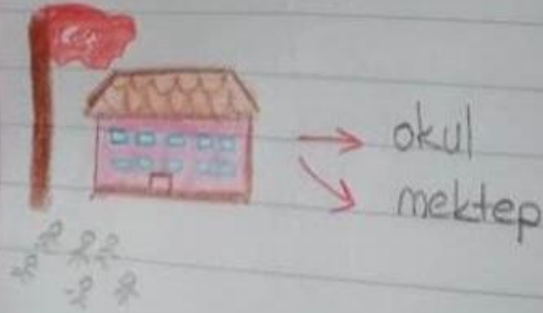 okul
mektep